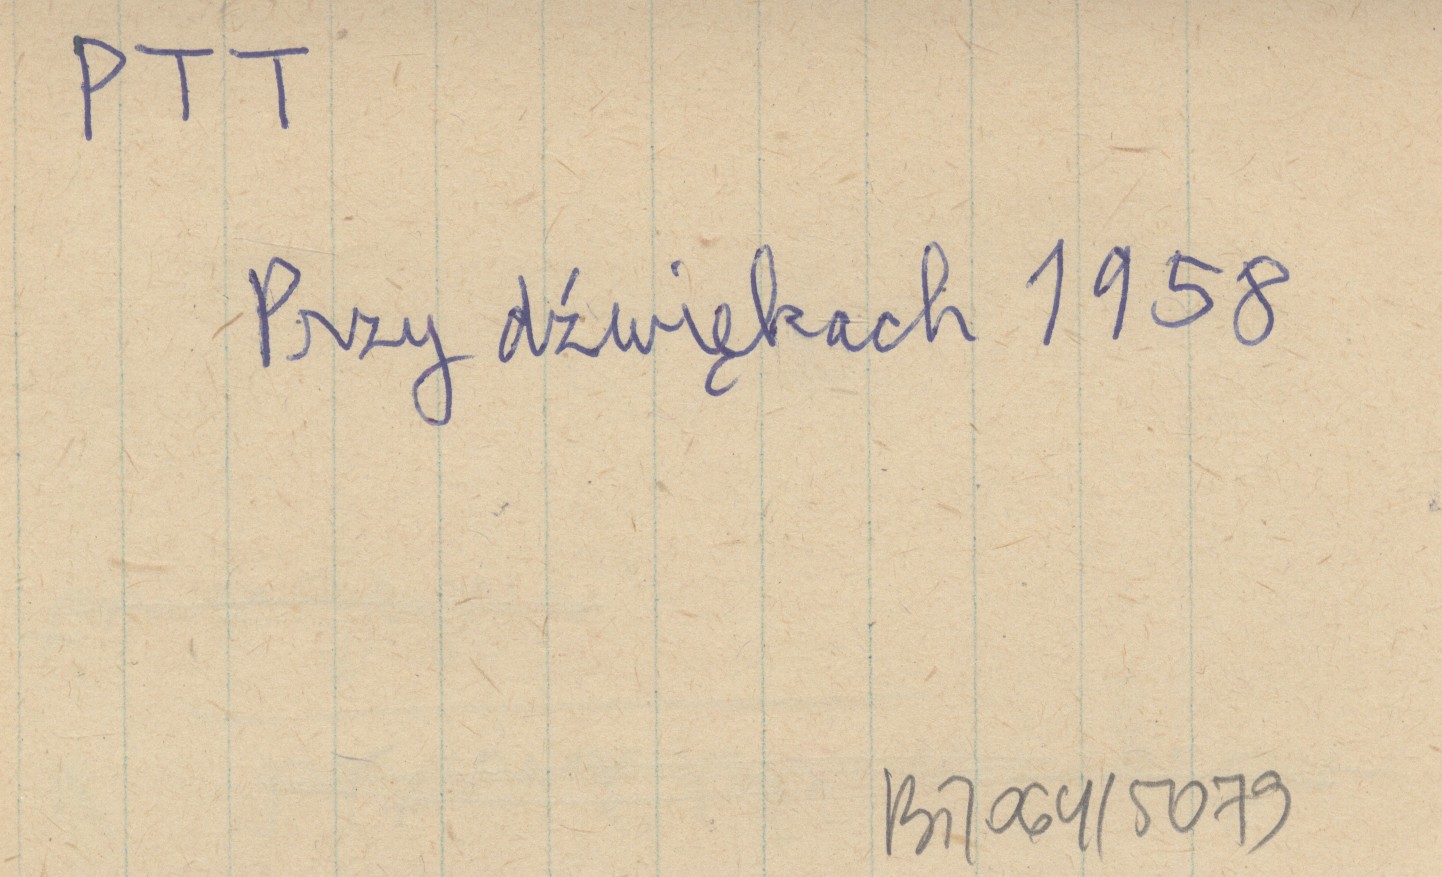 PTT
Przy dźwiękach 1958
5079